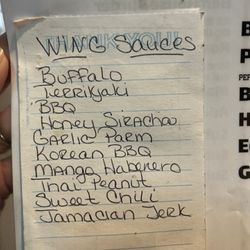 THANK YOU!
WING SAUCES
BUFFALO
TERRIYAKI
BBQ
HONEY SIRACHA
GARLIC PARM
KOREAN BBQ
MANGO HABENERO
THAI PEANUT
SWEET CHILI
JAMACIAN JERK
B
P
PEP
B
H
E
G